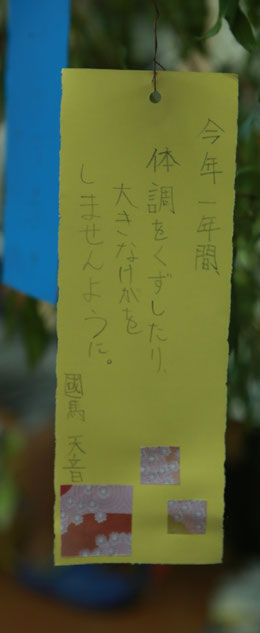 今年一年間
体調をくずしたり、
大きなけがを
しませんように。
國馬 天音